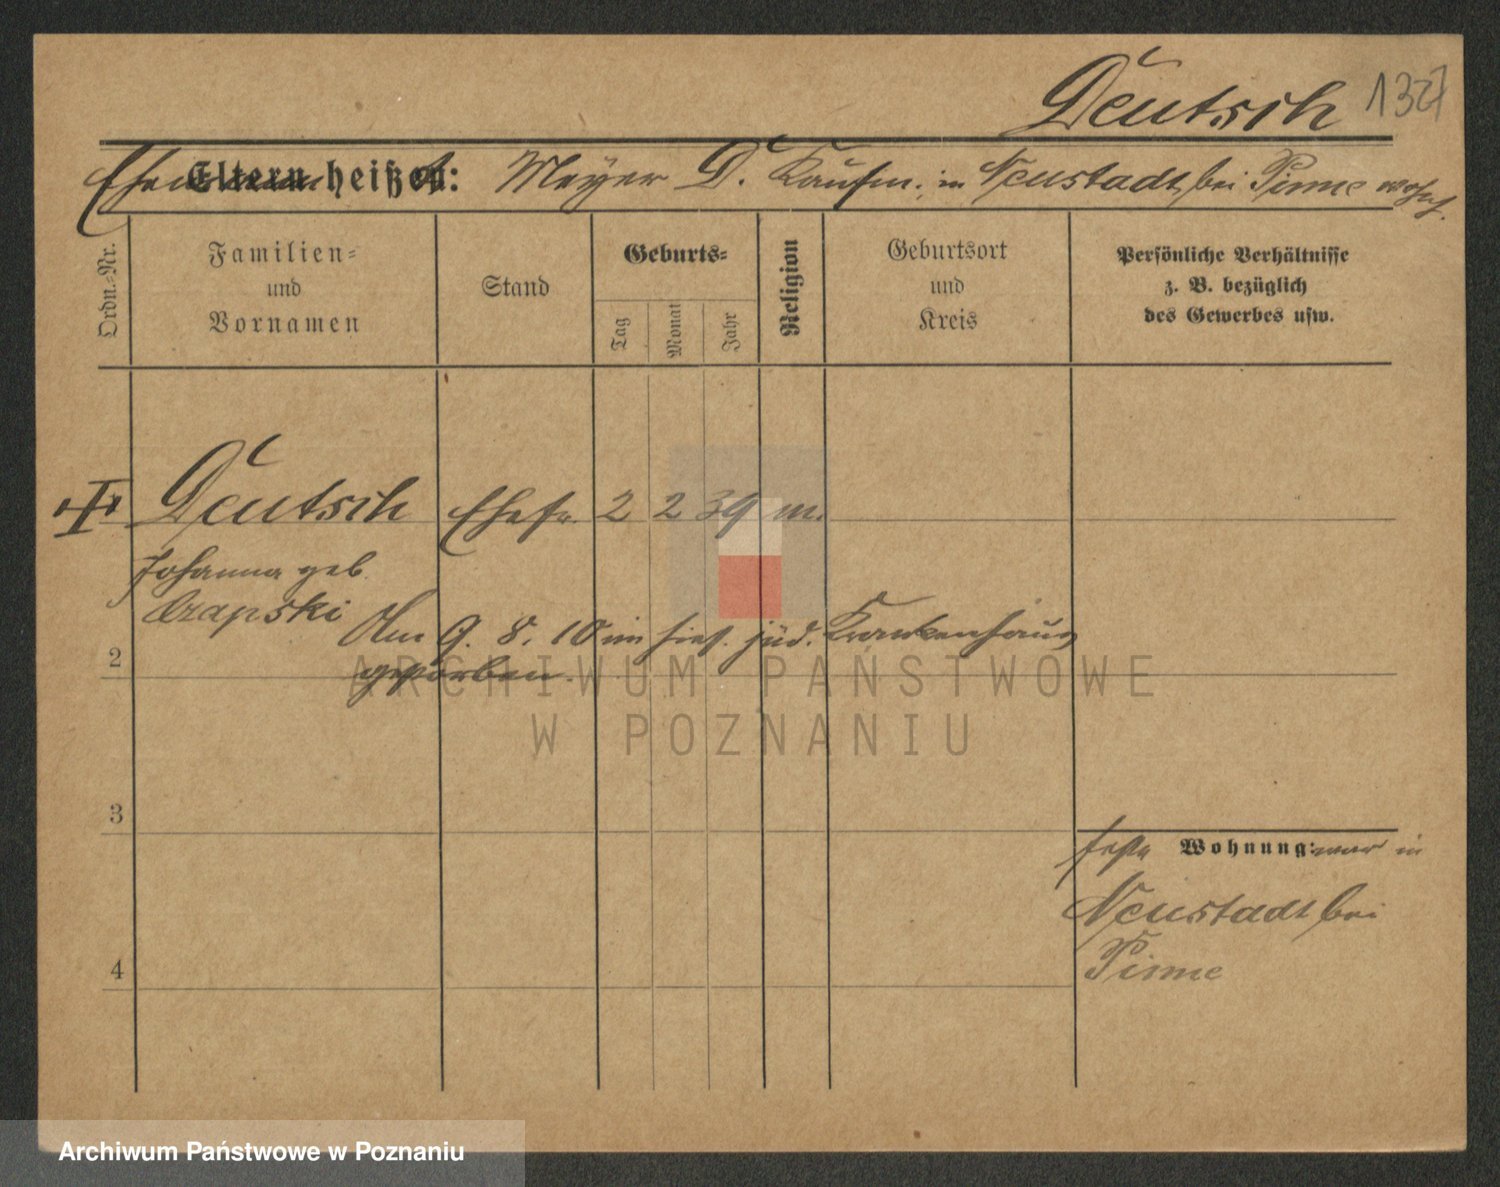 Deutsch
Eltern heißen: Meyer D. Kaufm. in Neustadt bei Pinne wohnh.
Ordn.-Nr.
Familien- und Vornamen
Stand
Geburts-
Tag
Monat
Jahr
Religion
Geburtsort und Kreis
Persönliche Verhältnisse
z. B. bezüglich
des Gewerbes usw.
Deutsch Ehefr. 2 2 39 m.
Johanna geb.
Czapski
Am 9. 8. 10 im hies. jüd. Krankenhaus
gestorben.
2
3
4
feste Wohnung: war in
Neustadt bei
Pinne
ARCHIWUM PAŃSTWOWE
W POZNANIU
Archiwum Państwowe w Poznaniu